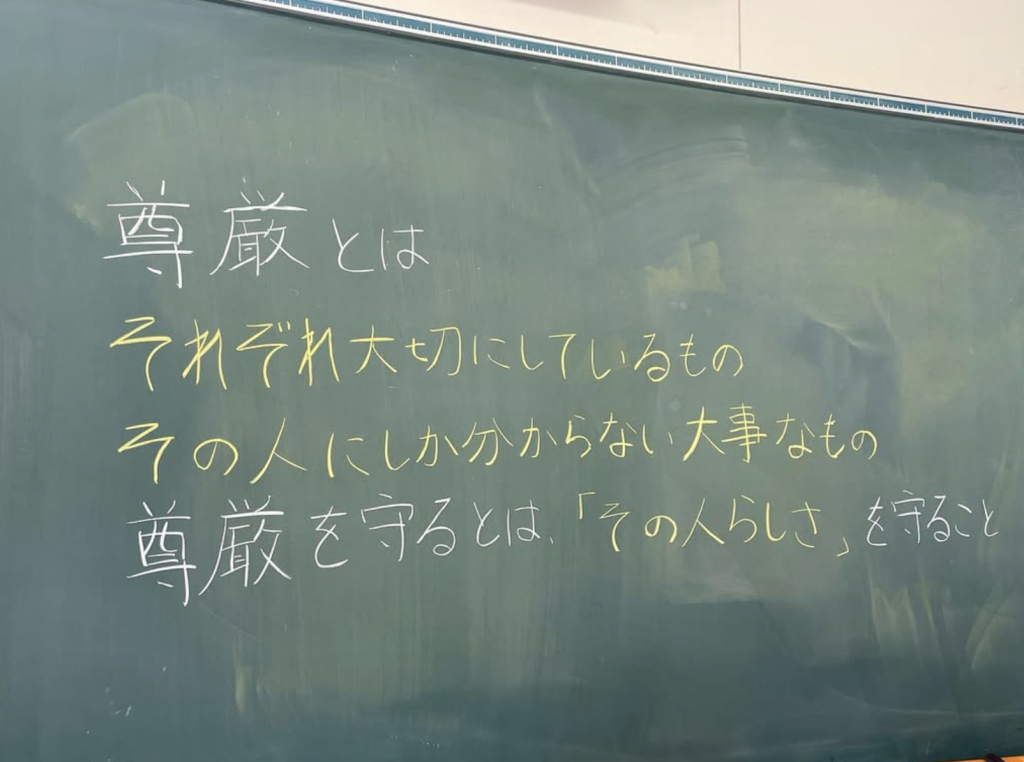 尊厳とは
それぞれ大切にしているもの
その人にしか分からない大事なもの
尊厳を守るとは、「その人らしさ」を守ること